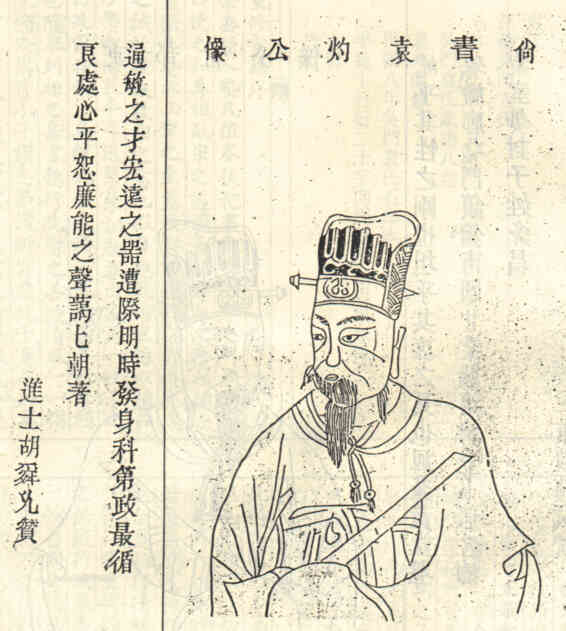 尚書袁灼公像
通敏之才宏遠之器遭際明時發身科第政最循
良處心平恕廉能之聲藹匕朝著
進士胡舜贊